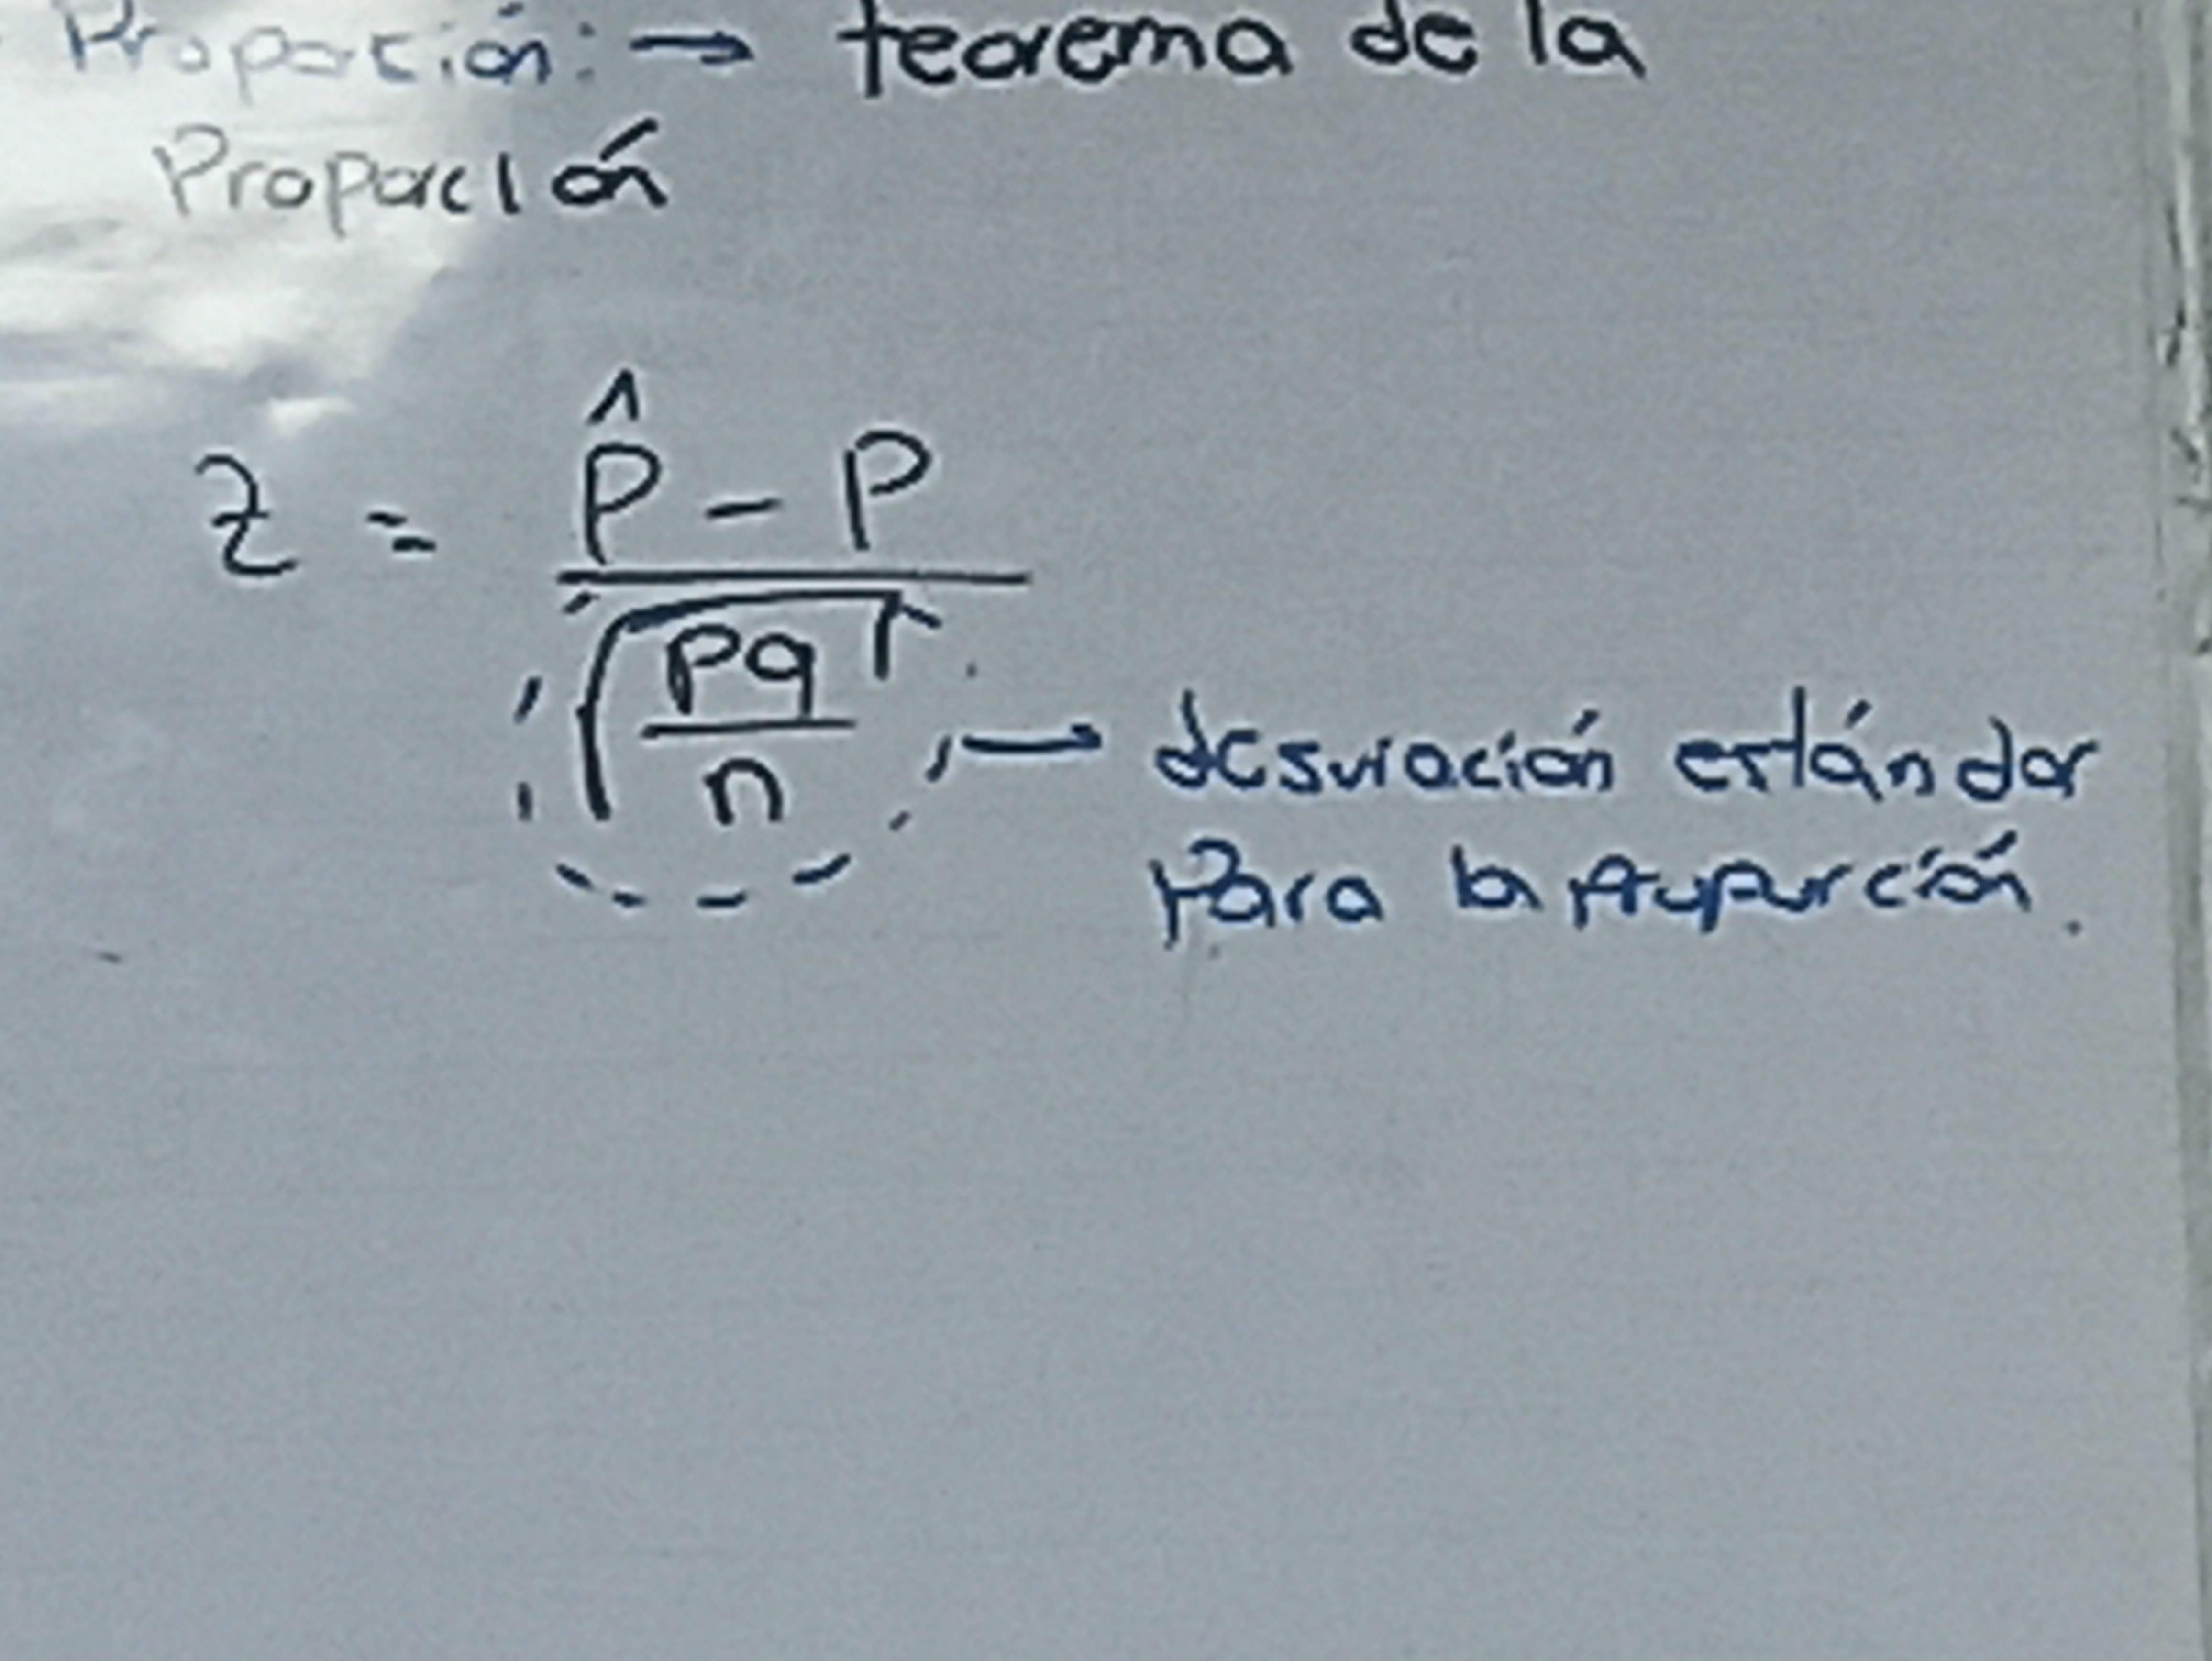 Proporción: → teorema de la
Proporción
Z = p̂ - P
√(pq/n) → desviación estándar
Para la proporción.